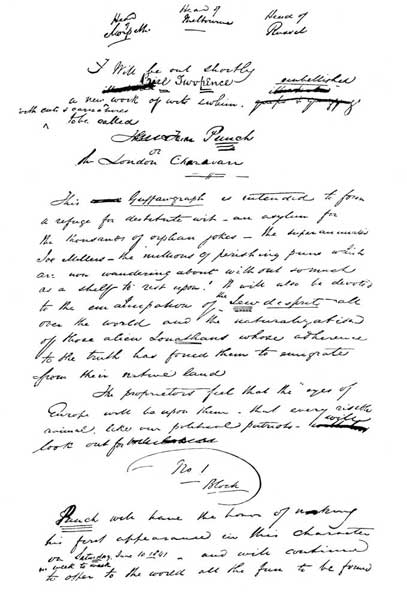 Head of Morpeth. Head of Melbourne Head of Russel
I Will be out shortly
Price Twopence embellished
a new work of wit & whim.
with cuts & caricatures
to be called
Punch
or
The London Charavari
This Guffawgraph is intended to form
a refuge for destitute wit - an asylum for
the thousands of orphan jokes - the superannuated
Joe Millers - the millions of perishing puns which
are now wandering about without so much
as a shelf to rest upon! It will also be devoted
to the emancipation of the Jew despots all
over the world and the naturalization
of those alien Jonathans whose adherence
to the truth has forced them to emigrate
from their native land
The proprietors feel that the eyes of
Europe will be upon them - that every risible
animal, like our political patriots - will
look out for
No 1
Block
Punch will have the honor of making
his first appearance in this character
on Saturday, June 10 1841 - and will continue
from week to week
to offer to the world all the fun to be found